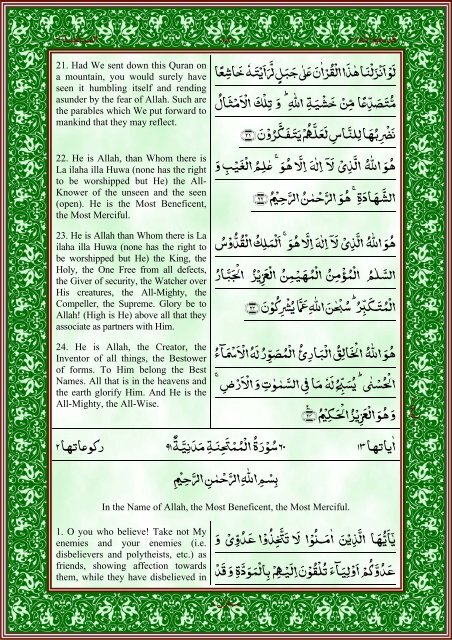 21. Had We sent down this Quran on
a mountain, you would surely have
seen it humbling itself and rending
asunder by the fear of Allah. Such are
the parables which We put forward to
mankind that they may reflect.
لَوْ اَنْزَلْنَا هٰذَا الْقُرْاٰنَ عَلٰى جَبَلٍ لَّرَاَيْتَهٗ خَاشِعًا
مُّتَصَدِّعًا مِّنْ خَشْيَةِ اللّٰهِ ؕ وَ تِلْكَ الْاَمْثَالُ
نَضْرِبُهَا لِلنَّاسِ لَعَلَّهُمْ يَتَفَكَّرُوْنَ ﴿۲۱﴾
22. He is Allah, than Whom there is
La ilaha illa Huwa (none has the right
to be worshipped but He) the All-
Knower of the unseen and the seen
(open). He is the Most Beneficent,
the Most Merciful.
هُوَ اللّٰهُ الَّذِىْ لَاۤ اِلٰهَ اِلَّا هُوَ ۚ عٰلِمُ الْغَيْبِ وَ
الشَّهَادَةِ ۚ هُوَ الرَّحْمٰنُ الرَّحِيْمُ ﴿۲۲﴾
23. He is Allah than Whom there is La
ilaha illa Huwa (none has the right to
be worshipped but He) the King, the
Holy, the One Free from all defects,
the Giver of security, the Watcher over
His creatures, the All-Mighty, the
Compeller, the Supreme. Glory be to
Allah! (High is He) above all that they
associate as partners with Him.
هُوَ اللّٰهُ الَّذِىْ لَاۤ اِلٰهَ اِلَّا هُوَ ۚ اَلْمَلِكُ الْقُدُّوْسُ
السَّلٰمُ الْمُؤْمِنُ الْمُهَيْمِنُ الْعَزِيْزُ الْجَبَّارُ
الْمُتَكَبِّرُ ؕ سُبْحٰنَ اللّٰهِ عَمَّا يُشْرِكُوْنَ ﴿۲۳﴾
24. He is Allah, the Creator, the
Inventor of all things, the Bestower
of forms. To Him belong the Best
Names. All that is in the heavens and
the earth glorify Him. And He is the
All-Mighty, the All-Wise.
هُوَ اللّٰهُ الْخَالِقُ الْبَارِئُ الْمُصَوِّرُ لَهُ الْاَسْمَآءُ
الْحُسْنٰى ؕ يُسَبِّحُ لَهٗ مَا فِى السَّمٰوٰتِ وَ الْاَرْضِ ۚ
وَ هُوَ الْعَزِيْزُ الْحَكِيْمُ ﴿۲۴﴾
اٰياتها ۱۳ ۶۰ سُوْرَةُ الْمُمْتَحِنَةِ مَدَنِيَّةٌ ۹۱ ركوعاتها ۲
بِسْمِ اللّٰهِ الرَّحْمٰنِ الرَّحِيْمِ
In the Name of Allah, the Most Beneficent, the Most Merciful.
1. O you who believe! Take not My
enemies and your enemies (i.e.
disbelievers and polytheists, etc.) as
friends, showing affection towards
them, while they have disbelieved in
يٰۤاَيُّهَا الَّذِيْنَ اٰمَنُوْا لَا تَتَّخِذُوْا عَدُوِّىْ وَ
عَدُوَّكُمْ اَوْلِيَآءَ تُلْقُوْنَ اِلَيْهِمْ بِالْمَوَدَّةِ وَ قَدْ